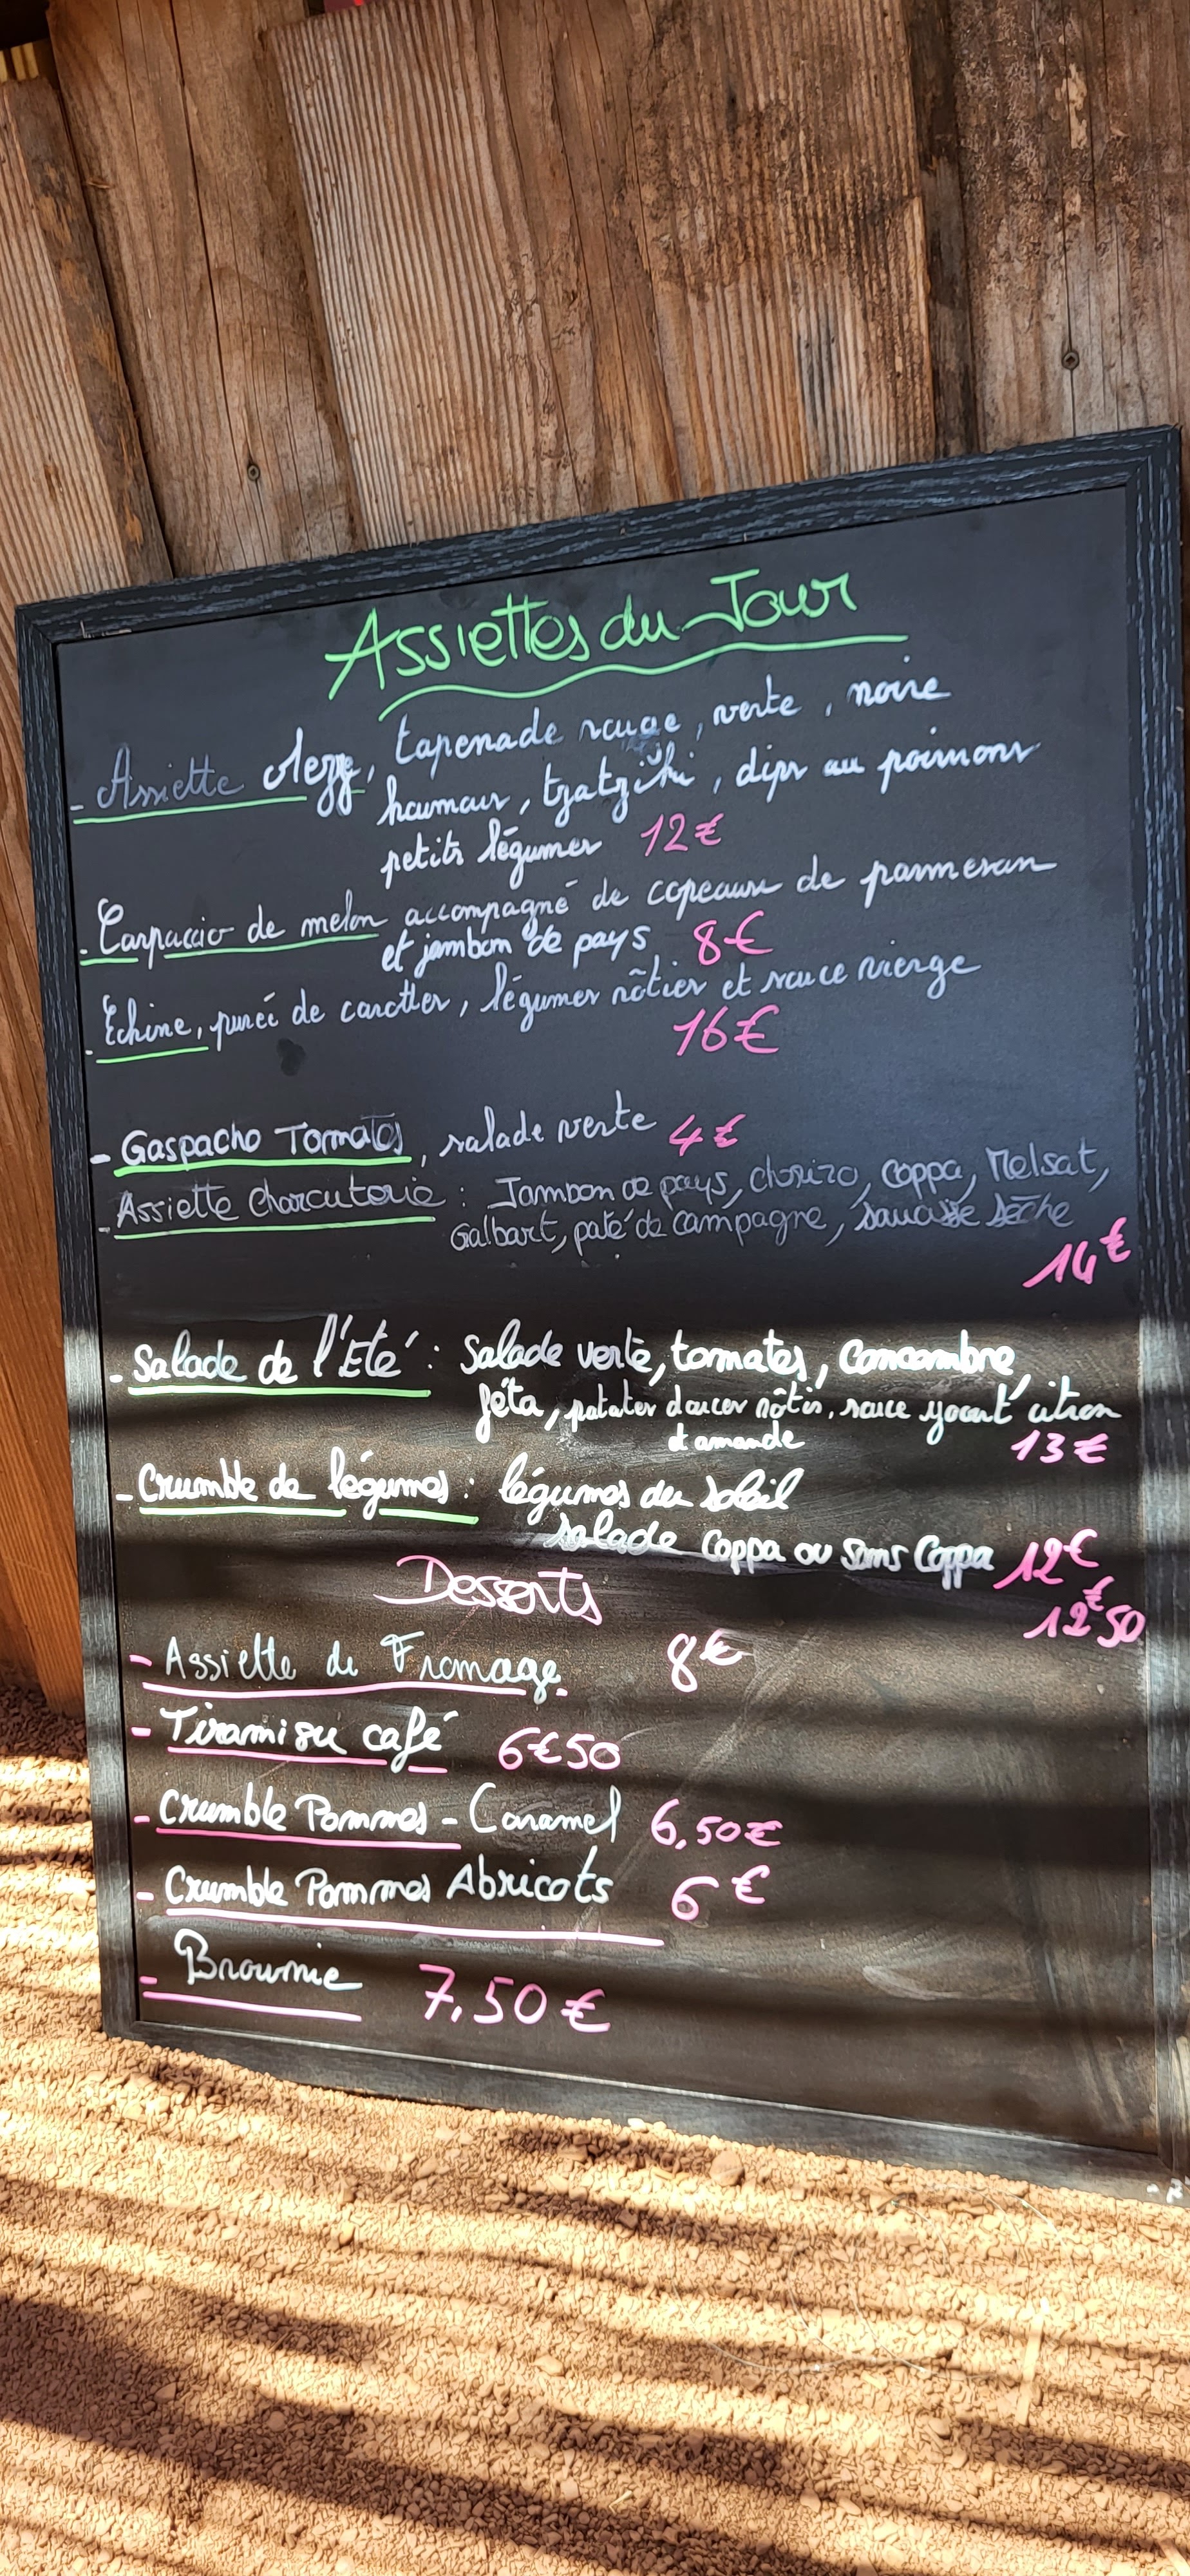 Assiettes du Jour
- Assiette Mezz, tapenade rouge, verte, noire
houmous, tzatziki, dips au poivrons
petits légumes 12€
- Carpaccio de melon accompagné de copeaux de parmesan
et jambon de pays 8€
- Echine, purée de carottes, légumes rôties et sauce vierge
16€
- Gaspacho Tomates, salade verte 4€
- Assiette Charcuterie : Jambon de pays, chorizo, Coppa, Melsat,
Galbart, paté de campagne, saucisse sèche
14€
- Salade de l'Eté : Salade verte, tomates, Concombre,
féta, patates douces rôtis, sauce yaourt citron
et amande 13€
- Crumble de légumes : légumes du soleil
salade Coppa ou sans Coppa 12€
12€50
Desserts
- Assiette de Fromage. 8€
- Tiramisu café 6€50
- Crumble Pommes - Caramel 6,50€
- Crumble Pommes Abricots 6€
- Brownie 7,50€